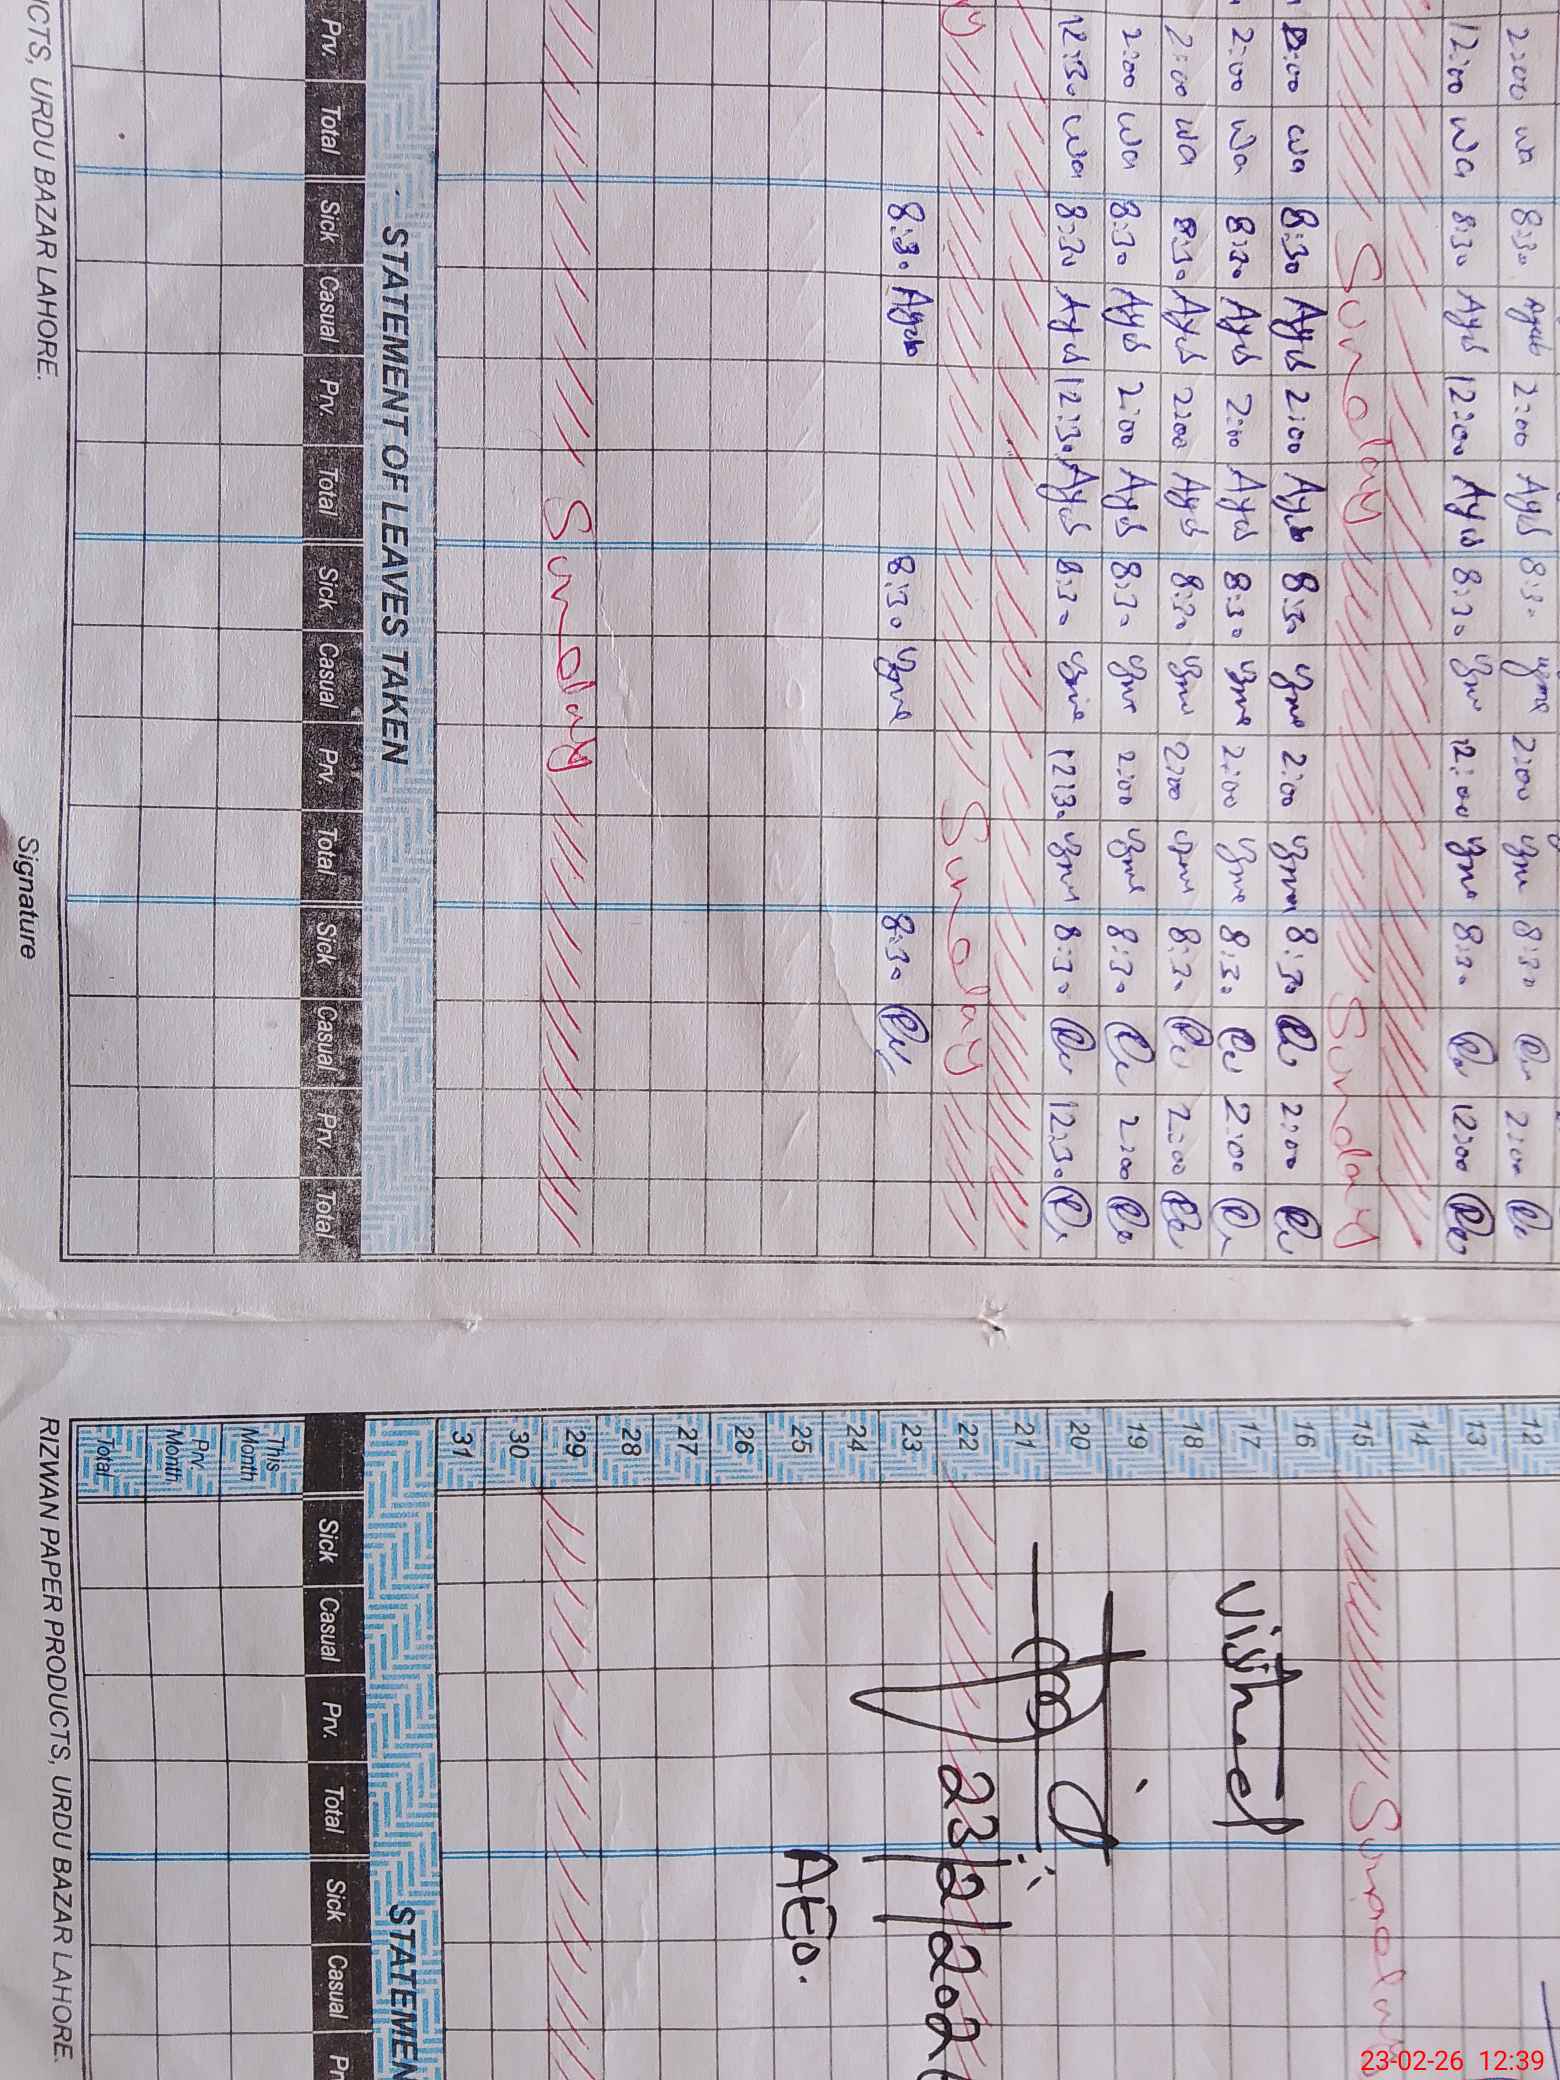 2:00 wa 8:30 Ayub 2:00 Ayub 8:30 uzma 2:00 8:30 2:00
12:00 wa 8:30 Ayub 12:00 Ayub 8:30 12:00 8:30 12:00
Sunday Sunday
2:00 wa 8:30 Ayub 2:00 Ayub 8:30 2:00 8:30 2:00
2:00 wa 8:30 Ayub 2:00 Ayub 8:30 2:00 8:30 2:00
2:00 wa 8:30 Ayub 2:00 Ayub 8:30 2:00 8:30 2:00
2:00 wa 8:30 Ayub 2:00 Ayub 8:30 2:00 8:30 2:00
12:30 wa 8:30 Ayub 12:30 Ayub 8:30 12:30 8:30 12:30
Sunday
8:30 Ayub 8:30 8:30
Sunday
STATEMENT OF LEAVES TAKEN
Prv. Total Sick Casual Prv. Total Sick Casual Prv. Total Sick Casual Prv. Total
UCTS, URDU BAZAR LAHORE. Signature
12
13
14
15 Sunday
16
17 Visited
18
19
20
21
22 23/2/202
23
24
25 AEO.
26
27
28
29
30
31
STATEMEN
Sick Casual Prv. Total Sick Casual Pr
This Month
Prv. Month
Total
RIZWAN PAPER PRODUCTS, URDU BAZAR LAHORE.
23-02-26 12:39